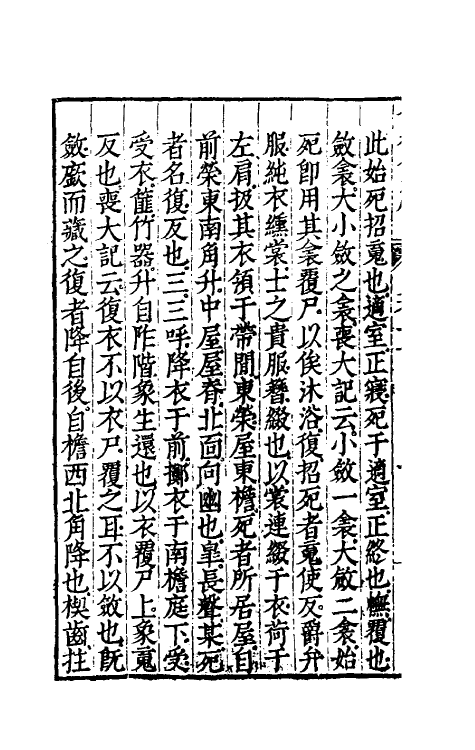 此始死招䰟也適室正寢死于適室正終也幠覆也
斂衾大小斂之衾喪大記云小斂一衾大斂二衾始
死卽用其衾覆尸以俟沐浴復招死者䰟使反爵弁
服純衣纁裳士之貴服簪綴也以裳連綴于衣荷于
左肩扱其衣領于帶間東榮屋東檐死者所居屋自
前榮東南角升中屋屋脊北面向幽也皐長聲某死
者名復反也三三呼降衣于前擲衣于南檐庭下受
受衣篚竹器升自阼階象生還也以衣覆尸上象䰟
反也喪大記云復衣不以衣尸覆之耳不以斂也旣
斂而藏之復者降自後自檐西北角降也楔齒拄